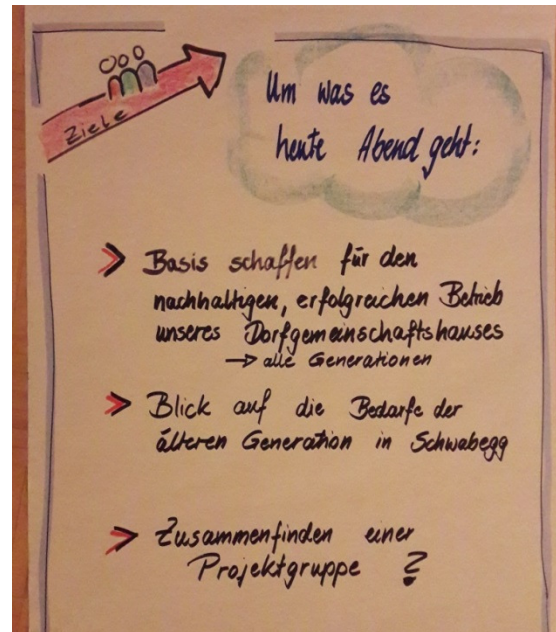 Ziele
Um was es
heute Abend geht:
Basis schaffen für den
nachhaltigen, erfolgreichen Betrieb
unseres Dorfgemeinschaftshauses
→ alle Generationen
Blick auf die Bedarfe der
älteren Generation in Schwabegg
Zusammenfinden einer
Projektgruppe ?